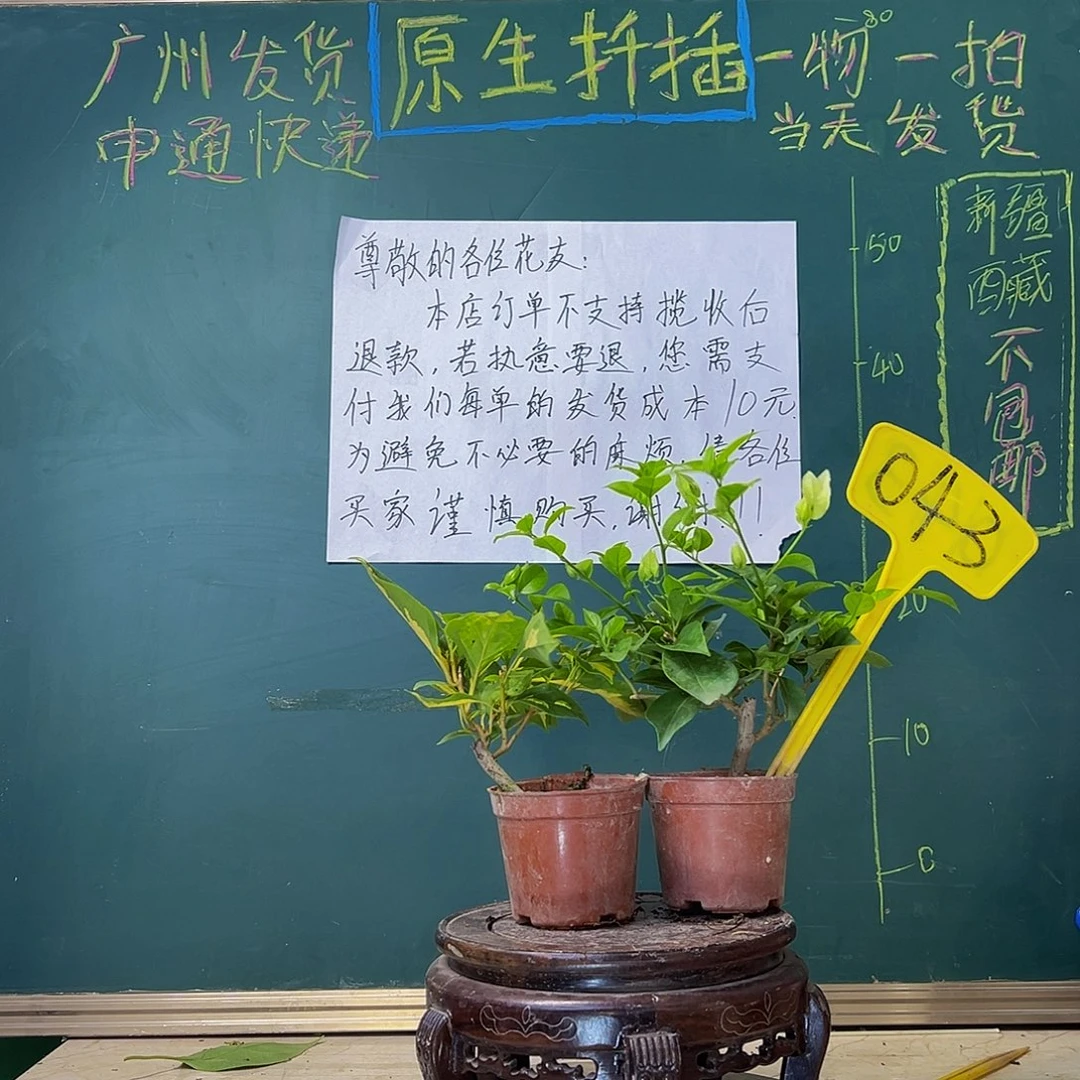 广州发货
申通快递
原生扦插
一物一拍
当天发货
80
新疆
西藏
不
包
邮
50
40
20
10
0
尊敬的各位花友：
本店订单不支持揽收后
退款，若执意要退，您需支
付我们每单的发货成本10元
为避免不必要的麻烦，请各位
买家谨慎购买，谢谢！！
043